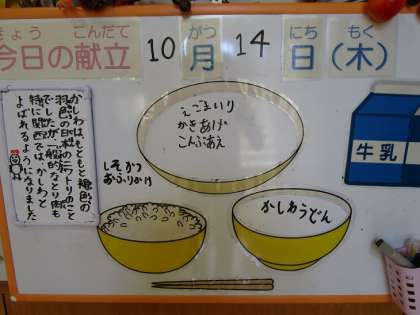 きょう こんだて がつ にち もく
今日の献立 10月14日(木)
ごまいり
かきあげ
こんぶあえ
牛乳
かしわは もともと 褐色の
羽色の日本のニワトリのこと
でしたが、一般的なとり肉も
特に関西では、かしわと
よばれるようになりました
しそかつお
ふりかけ
かしわうどん